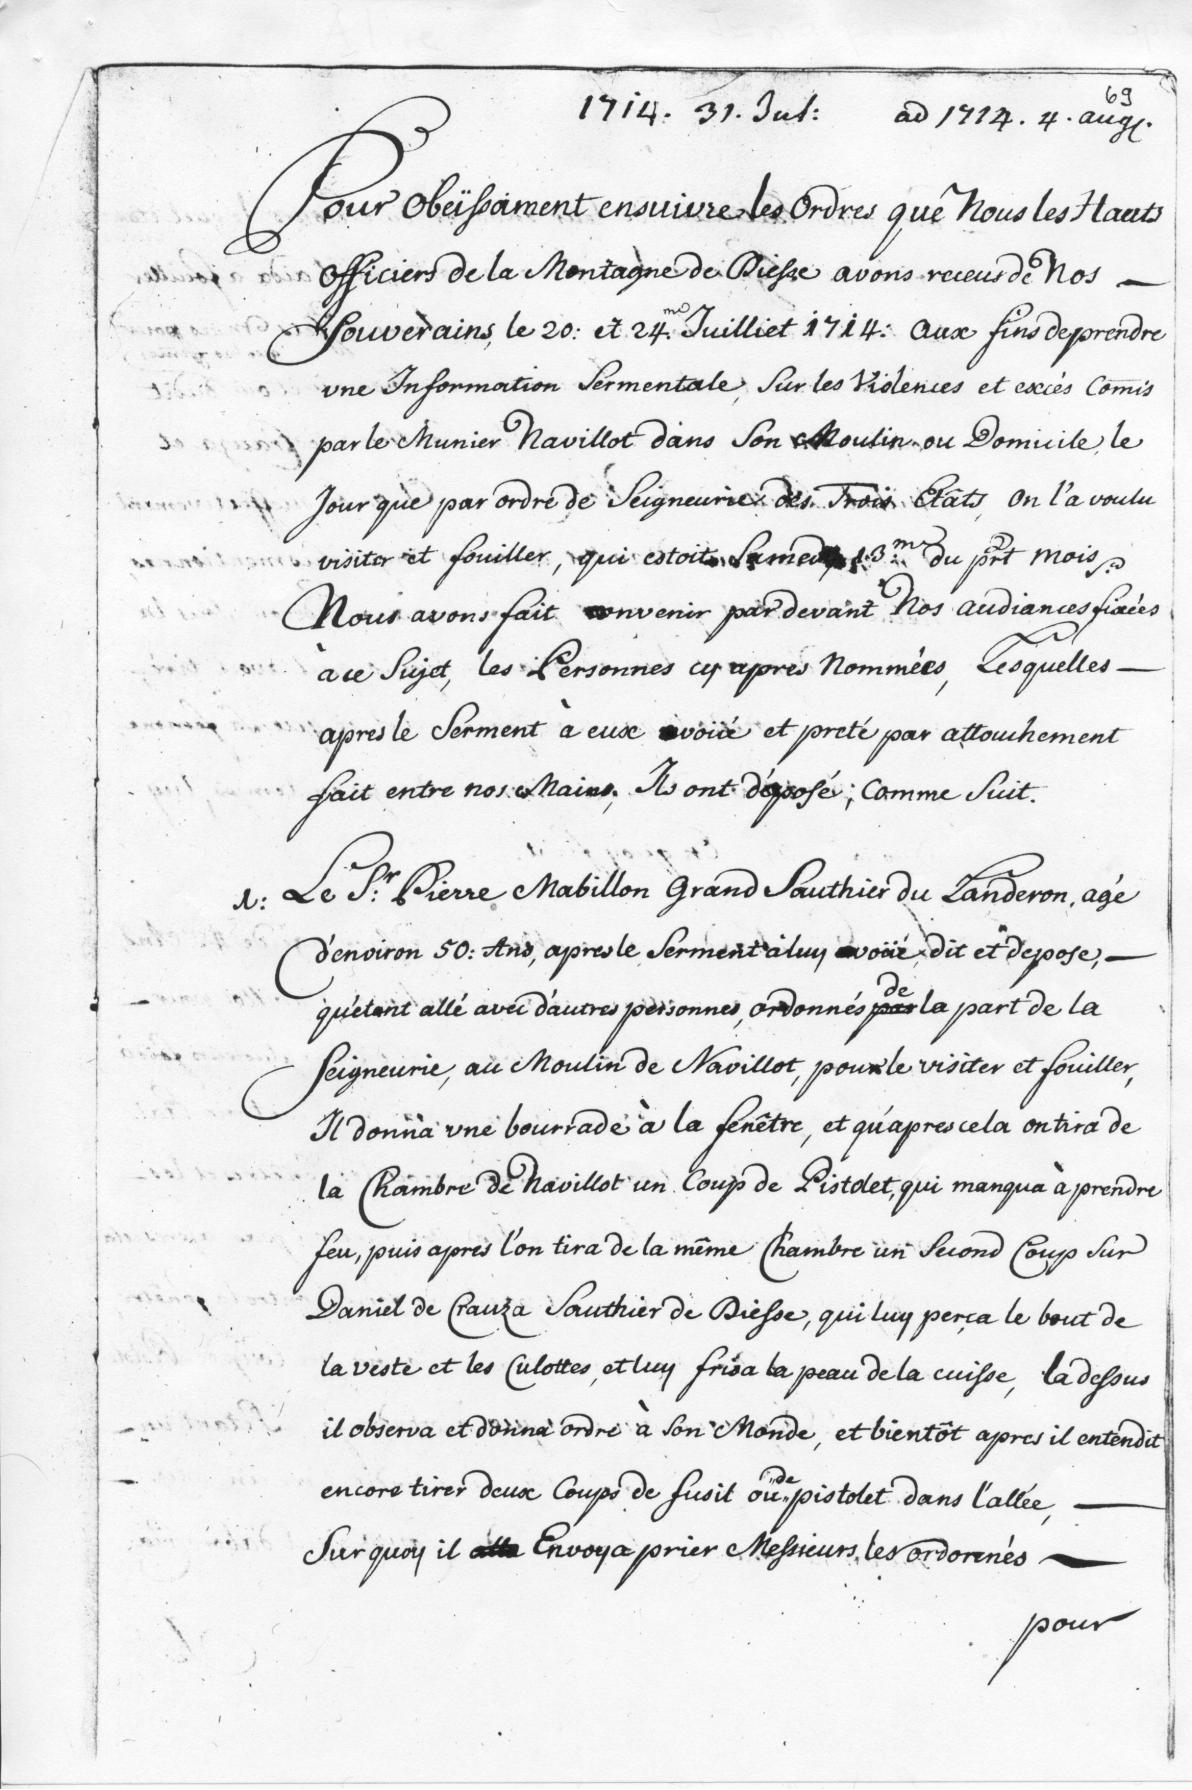 69
1714. 31. Jul: ad 1714. 4. aug.
Pour Obeïssament ensuivre les Ordres que Nous les Hauts
Officiers de la Montagne de Diesse avons receus de Nos —
Souverains, le 20: et 24.me Juilliet 1714: aux fins de prendre
vne Information Sermentale, Sur les Violences et excés Comis
par le Munier Navillot dans Son Moulin ou Domicile, le
Jour que par ordre de Seigneurie des Trois Etats, on l'a voulu
visiter et fouiller, qui estoit Samedy 13.me du prt mois.
Nous avons fait convenir par devant Nos audiances fixées
à ce Sujet, les Personnes cy apres Nommées, Lesquelles —
apres le Serment à eux avoüé et preté par attouchement
fait entre nos Mains, Ils ont déposé; Comme Suit.
1: Le S:r Pierre Mabillon Grand Sauthier du Landeron, agé
d'environ 50: Ans, apres le Serment à luy avoüé, dit et depose, —
qu'étant allé avec d'autres personnes, ordonnés par de la part de la
Seigneurie, au Moulin de Navillot, pour le visiter et fouiller,
Il donna vne bourrade à la fenêtre, et qu'apres cela on tira de
la Chambre de Navillot un Coup de Pistolet, qui manqua à prendre
feu, puis apres l'on tira de la même Chambre un Second Coup Sur
Daniel de Crauza Sauthier de Diesse, qui luy perça le bout de
la veste et les Culottes, et luy frisa la peau de la cuisse, la dessus
il observa et donna ordre à Son Monde, et bientôt apres il entendit
encore tirer deux Coups de fusil ou de pistolet dans l'allée, —
Sur quoy il alla Envoya prier Messieurs les ordonnés —
pour